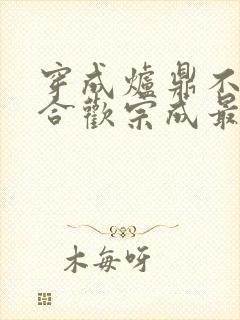 穿成爐鼎不
合歡宗成最
木每呀